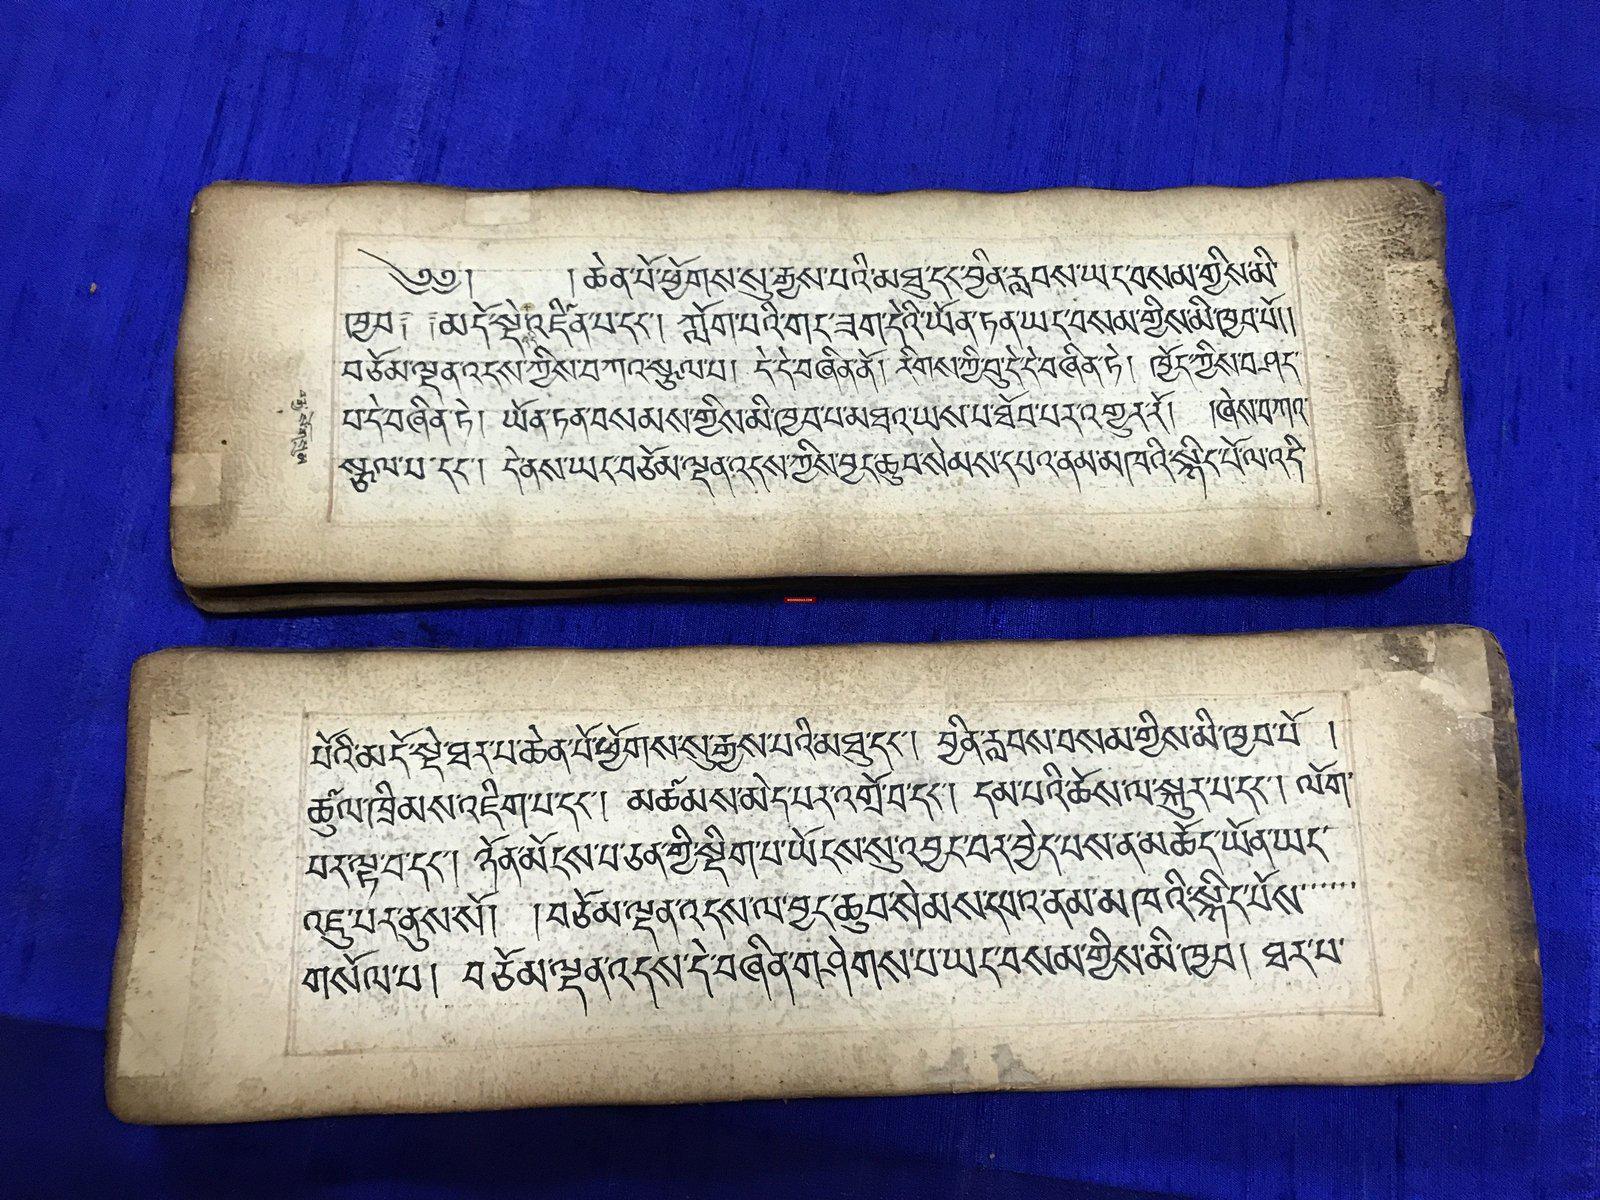 ༄༅། །ཆེན་པོ་ཕྱོགས་སུ་རྒྱས་པའི་མཐུ་དང་བྱིན་རླབས་ཡང་བསམ་གྱིས་མི་
ཁྱབ། །མདོ་སྡེ་འཛིན་པ་དང་། ཀློག་པའི་གང་ཟག་དེའི་ཡོན་ཏན་ཡང་བསམ་གྱིས་མི་ཁྱབ་པོ།།
བཅོམ་ལྡན་འདས་ཀྱིས་བཀའ་སྩལ་པ། དེ་དེ་བཞིན་ནོ། རིགས་ཀྱི་བུ་དེ་དེ་བཞིན་ཏེ། ཁྱོད་ཀྱིས་བཤད་
པ་དེ་བཞིན་ཏེ། ཡོན་ཏན་བསམས་གྱིས་མི་ཁྱབ་པ་མཐའ་ཡས་པ་ཐོབ་པར་འགྱུར་རོ། །ཞེས་བཀའ་
སྩལ་པ་དང་། དེ་ནས་ཡང་བཅོམ་ལྡན་འདས་ཀྱིས་བྱང་ཆུབ་སེམས་དཔའ་ནམ་མཁའི་སྙིང་པོ་ལ་འདི་
པོའི་མདོ་སྡེ་ཐར་པ་ཆེན་པོ་ཕྱོགས་སུ་རྒྱས་པའི་མཐུ་དང་། བྱིན་རླབས་བསམ་གྱིས་མི་ཁྱབ་པོ །
ཚུལ་ཁྲིམས་འཇིག་པ་དང་། མཚམས་མེད་པར་འགྲོ་བ་དང་། དམ་པའི་ཆོས་ལ་སྐུར་པ་དང་། ལོག་
པར་ལྟ་བ་དང་། ཉོན་མོངས་པ་ཅན་གྱི་སྡིག་པ་ཡོངས་སུ་འབྱང་བར་བྱེད་པས་ན་མཆོད་ཡོན་ཡང་
འཇུ་པར་ནུས་སོ། །བཅོམ་ལྡན་འདས་ལ་བྱང་ཆུབ་སེམས་དཔའ་ནམ་མཁའི་སྙིང་པོས་
གསོལ་པ། བཅོམ་ལྡན་འདས་དེ་བཞིན་གཤེགས་པ་ཡང་བསམ་གྱིས་མི་ཁྱབ། ཐར་པ་